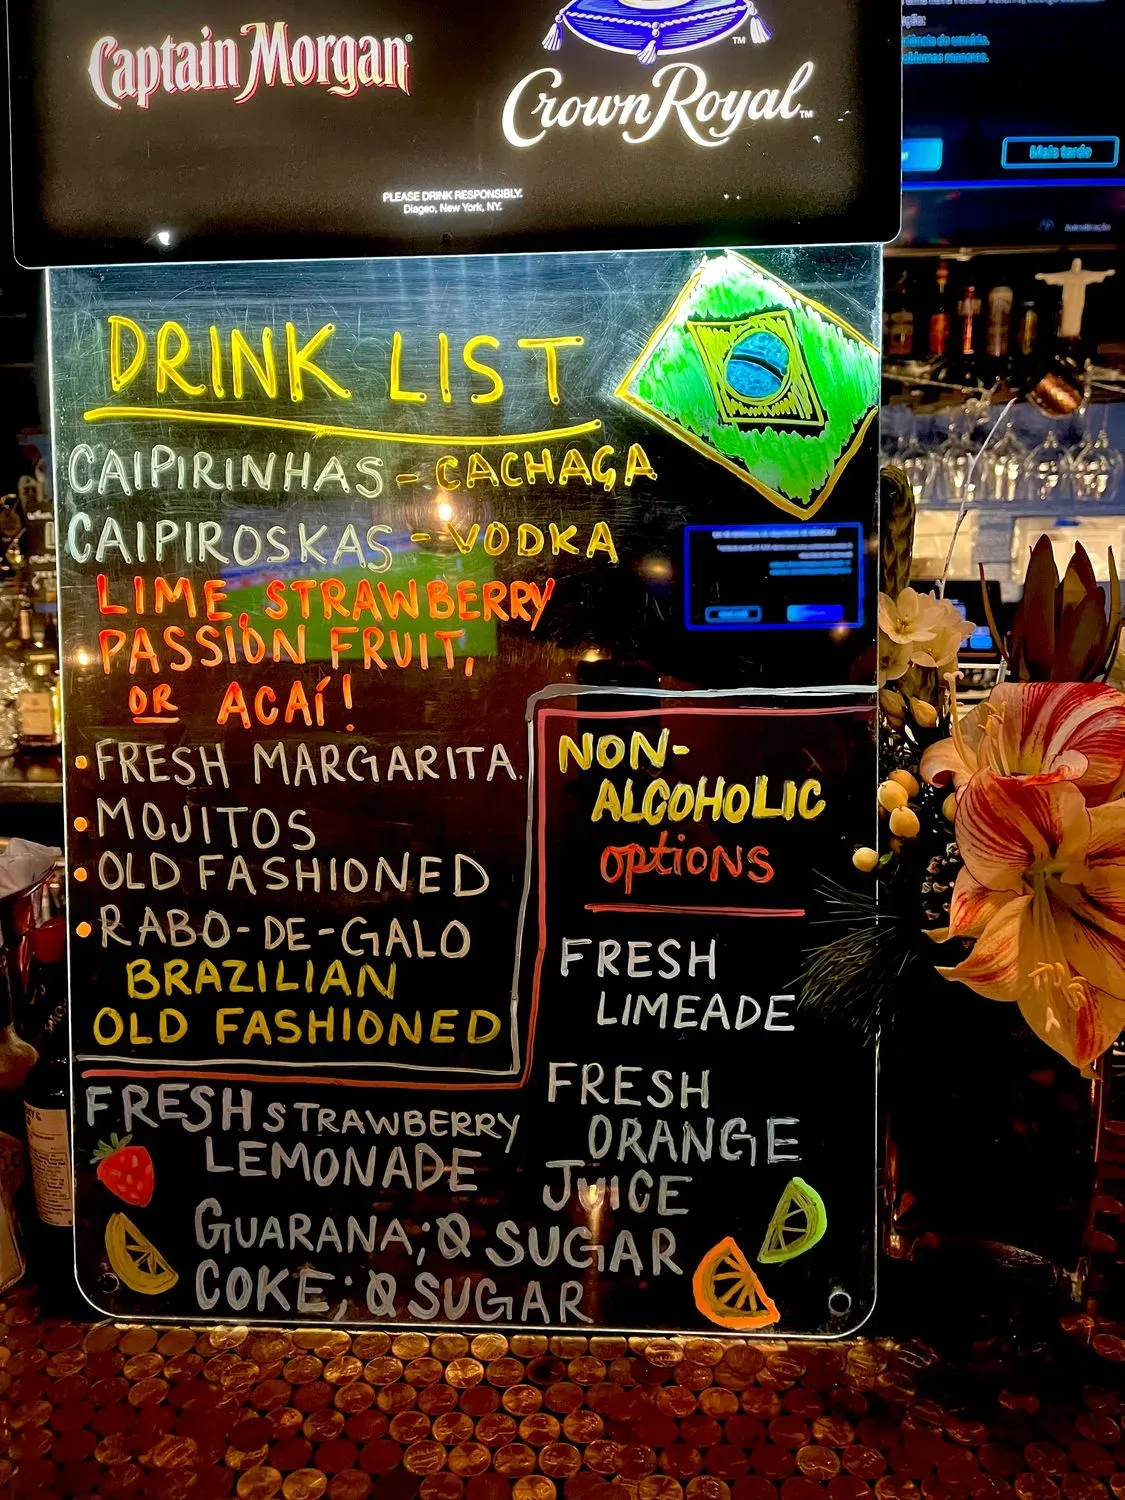 Captain Morgan
Crown Royal™
PLEASE DRINK RESPONSIBLY.
Diageo, New York, NY.
Mais tarde
DRINK LIST
CAIPIRINHAS - CACHAÇA
CAIPIROSKAS - VODKA
LIME, STRAWBERRY
PASSION FRUIT,
OR ACAÍ!
• FRESH MARGARITA.
• MOJITOS
• OLD FASHIONED
• RABO-DE-GALO
BRAZILIAN
OLD FASHIONED
NON-
ALCOHOLIC
options
FRESH
LIMEADE
FRESH
ORANGE
JUICE
FRESH STRAWBERRY
LEMONADE
GUARANA; Ø SUGAR
COKE; Ø SUGAR